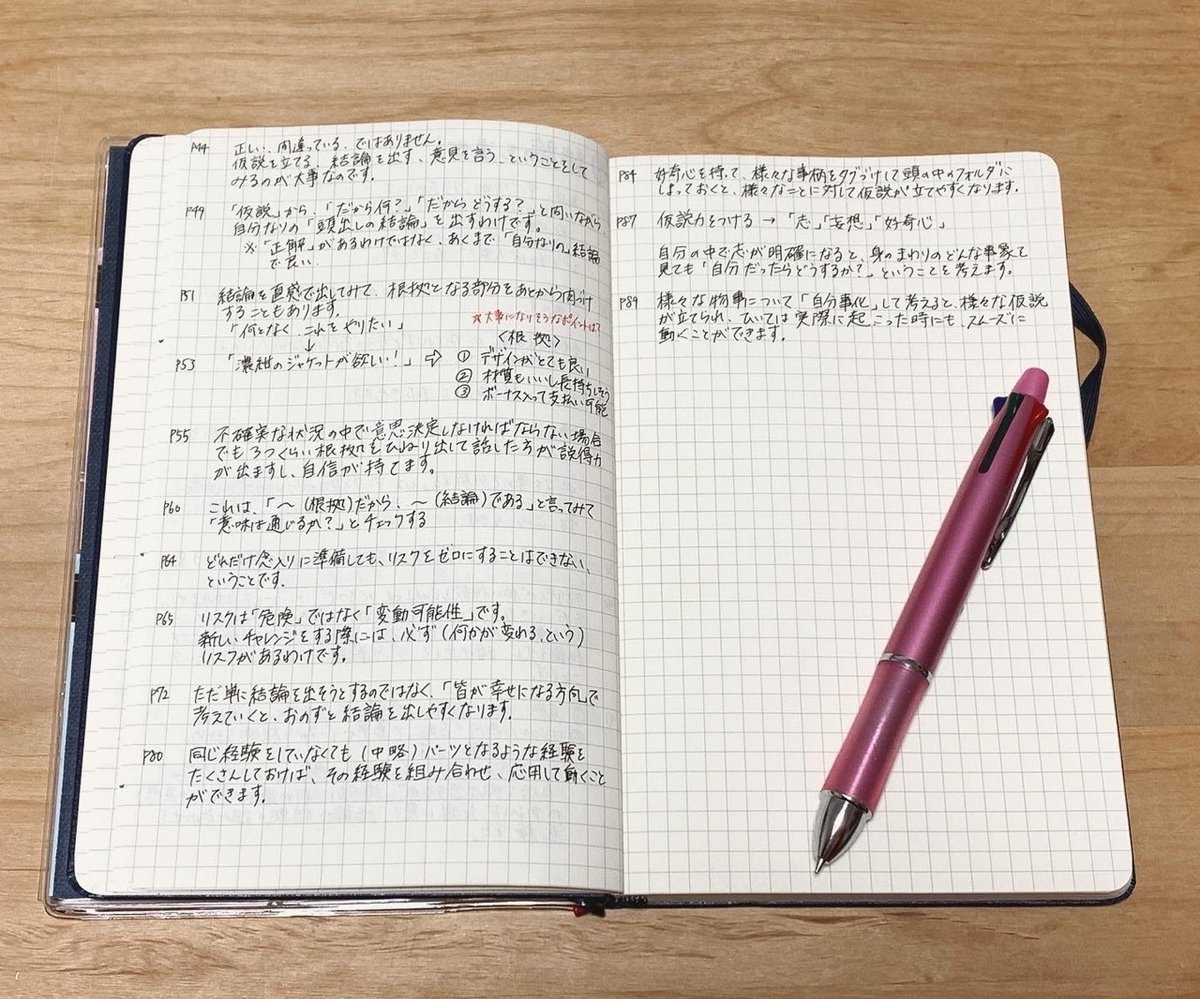 P44 正しい、間違っている、ではありません。
仮説を立てる、結論を出す、意見を言う、ということをして
みるのが大事なのです。
P49 「仮説」から、「だから何？」「だからどうする？」と問いながら、
自分なりの「頭出しの結論」を出すわけです。
※「正解」があるわけではなく、あくまで「自分なりの」結論
で良い
P51 結論を直感で出してみて、根拠となる部分をあとから肉づけ
することもあります。
「何となく、これをやりたい」
☆大事になりそうなポイントは？
↓
〈根拠〉
P53 「濃紺のジャケットが欲しい！」 ⇨ ① デザインがとても良い
② 材質もいいし長持ちしそう
③ ボーナス入って支払い可能
P55 不確実な状況の中で意思決定しなければならない場合
でも3つくらい根拠をひねり出して話した方が説得力
が出ますし、自信が持てます。
P60 これは、「〜(根拠)だから、〜(結論)である」と言ってみて
「意味は通じるか？」とチェックする
P64 どれだけ念入りに準備しても、リスクをゼロにすることはできない、
ということです。
P65 リスクは「危険」ではなく「変動可能性」です。
新しいチャレンジをする際には、必ず(何かが変わる、という)
リスクがあるわけです。
P72 ただ単に結論を出そうとするのではなく、「皆が幸せになる方向」で
考えていくと、おのずと結論を出しやすくなります。
P80 同じ経験をしていなくても(中略)パーツとなるような経験を
たくさんしておけば、その経験を組み合わせ、応用して動くこと
ができます。
P84 好奇心を持って、様々な事柄をタグづけして頭の中のフォルダに
しまっておくと、様々なことに対して仮説が立てやすくなります。
P87 仮説力をつける → 「志」「妄想」「好奇心」
自分の中で志が明確になると、身のまわりのどんな事象を
見ても「自分だったらどうするか？」ということを考えます。
P89 様々な物事について「自分事化」して考えると、様々な仮説
が立てられ、ひいては実際に起こった時にも、スムーズに
動くことができます。